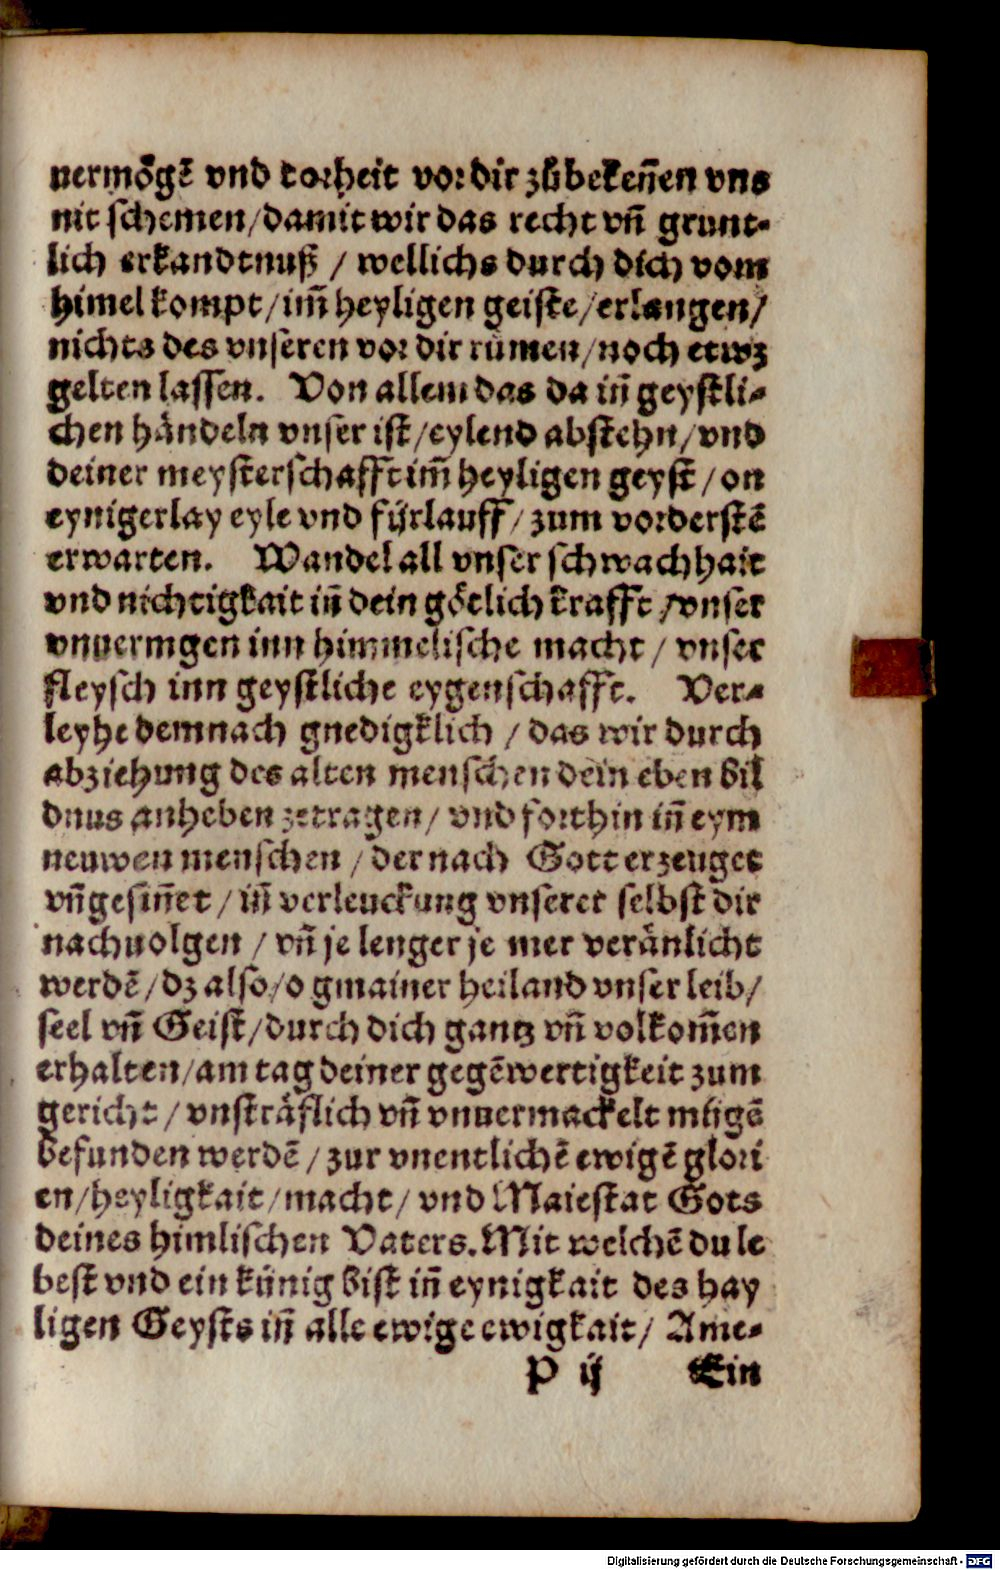 uermögē vnd torheit vor dir zůbekeñen vns
nit schemen/damit wir das recht vñ grunt-
lich erkandtnuß / wellichs durch dich vom
himel kompt/im̃ heyligen geiste/erlangen/
nichts des vnseren vor dir rümen/noch etwz
gelten lassen. Von allem das da iñ geystli-
chen händeln vnser ist/eylend abstehn/vnd
deiner meysterschafft im̃ heyligen geyst/on
eynigerlay eyle vnd fürlauff/zum vorderstē
erwarten. Wandel all vnser schwachhait
vnd nichtigkait iñ dein götlich krafft/vnser
vnuermgen inn himmelische macht/ vnser
fleysch inn geystliche eygenschafft. Ver-
leyhe demnach gnedigklich / das wir durch
abziehung des alten menschen dein eben bil
dnus anheben zetragen/ vnd forthin iñ eym
neuwen menschen / der nach Gott erzeuget
vñgesiñet / iñ verleuckung vnserer selbst dir
nachuolgen / vñ je lenger je mer veränlicht
werdē/dz also/o gmainer heiland vnser leib/
seel vñ Geist/durch dich gantz vñ volkom̃en
erhalten/am tag deiner gegēwertigkeit zum
gericht/ vnsträflich vñ vnuermackelt mügē
befunden werdē / zur vnentlichē ewigē glori
en/heyligkait/macht/ vnd Maiestat Gots
deines himlischen Vaters. Mit welchē du le
best vnd ein künig bist iñ eynigkait des hay
ligen Geysts iñ alle ewige ewigkait/ Ame-
P ij Ein
Digitalisierung gefördert durch die Deutsche Forschungsgemeinschaft - DFG